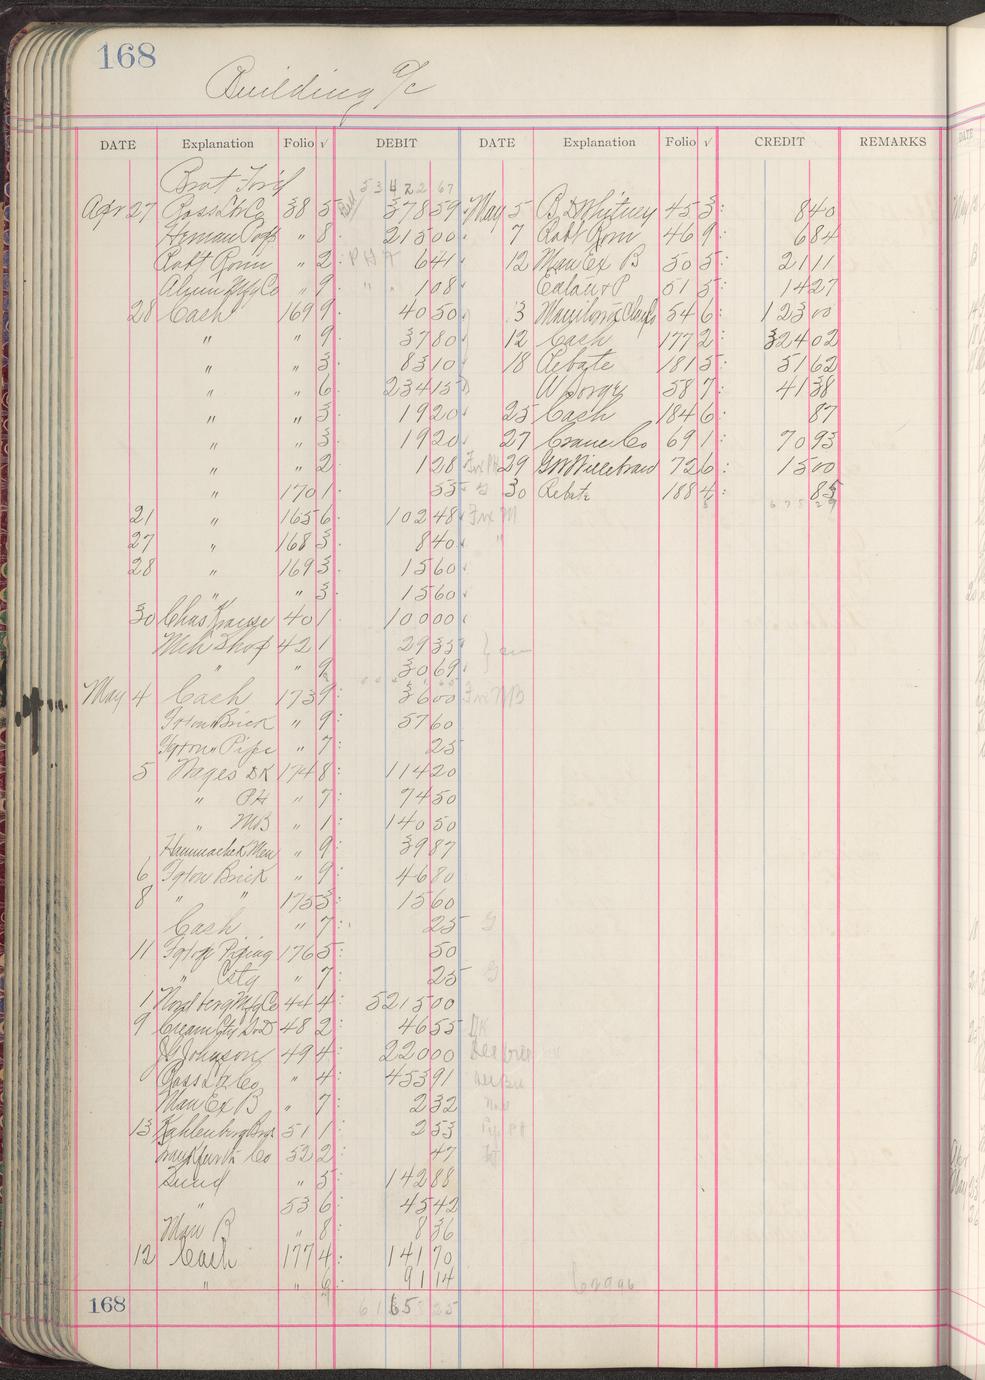 168
Building a/c
DATE Explanation Folio √ DEBIT DATE Explanation Folio √ CREDIT REMARKS
Brot For'd 53422 67
Apr 27 Pass Lbr Co 38 5 378 59 May 5 B D Whitney 45 3 8 40
Herman " 8 215 00 7 Robt Rom 46 9 6 84
Robt Rom " 2 PH 6 41 12 Man Ex B 50 5 21 11
Alum Mfg Co " 9 " 1 08 51 5 14 27
28 Cash 169 9 40 50 3 54 6 123 00
" " 9 37 80 12 Cash 177 2 324 02
" " 3 83 10 18 Rebate 181 5 51 62
" " 6 234 15 58 7 41 38
" " 3 19 20 25 Cash 184 6 87
" " 3 19 20 27 Crane Co 69 1 70 93
" " 2 1 28 29 72 6 15 00
" 170 1 55 30 Rebate 188 4 85
21 " 165 6 102 48
27 " 168 3 8 40
28 " 169 3 15 60
" " 3 15 60
30 Chas Krause 40 1 100 00
Meh Shop 42 1 29 35
" " 9 30 69
May 4 Cash 173 9 36 00
Frt on Brick " 9 57 60
Frt on Pipe " 7 25
5 Wages DK 174 8 114 20
" PH " 7 74 50
" MB " 1 140 50
" 9 39 87
6 Frt on Brick " 9 46 80
8 " " 175 3 15 60
Cash " 7 25
11 Piping 176 5 50
" " 7 25
1 Nordberg Mfg Co 44 4 5215 00
9 Cream City 48 2 46 55 DK
J G Johnson 49 4 220 00
Pass Lbr Co " 4 453 91
Man Ex B " 7 2 32
13 Kahlenberg Bros 51 1 2 53
Frankfurth Co 52 2 47
Sund " 5 142 88
" 53 6 45 42
Man B " 8 8 36
12 Cash 177 4 141 70
" " 6 91 14
168